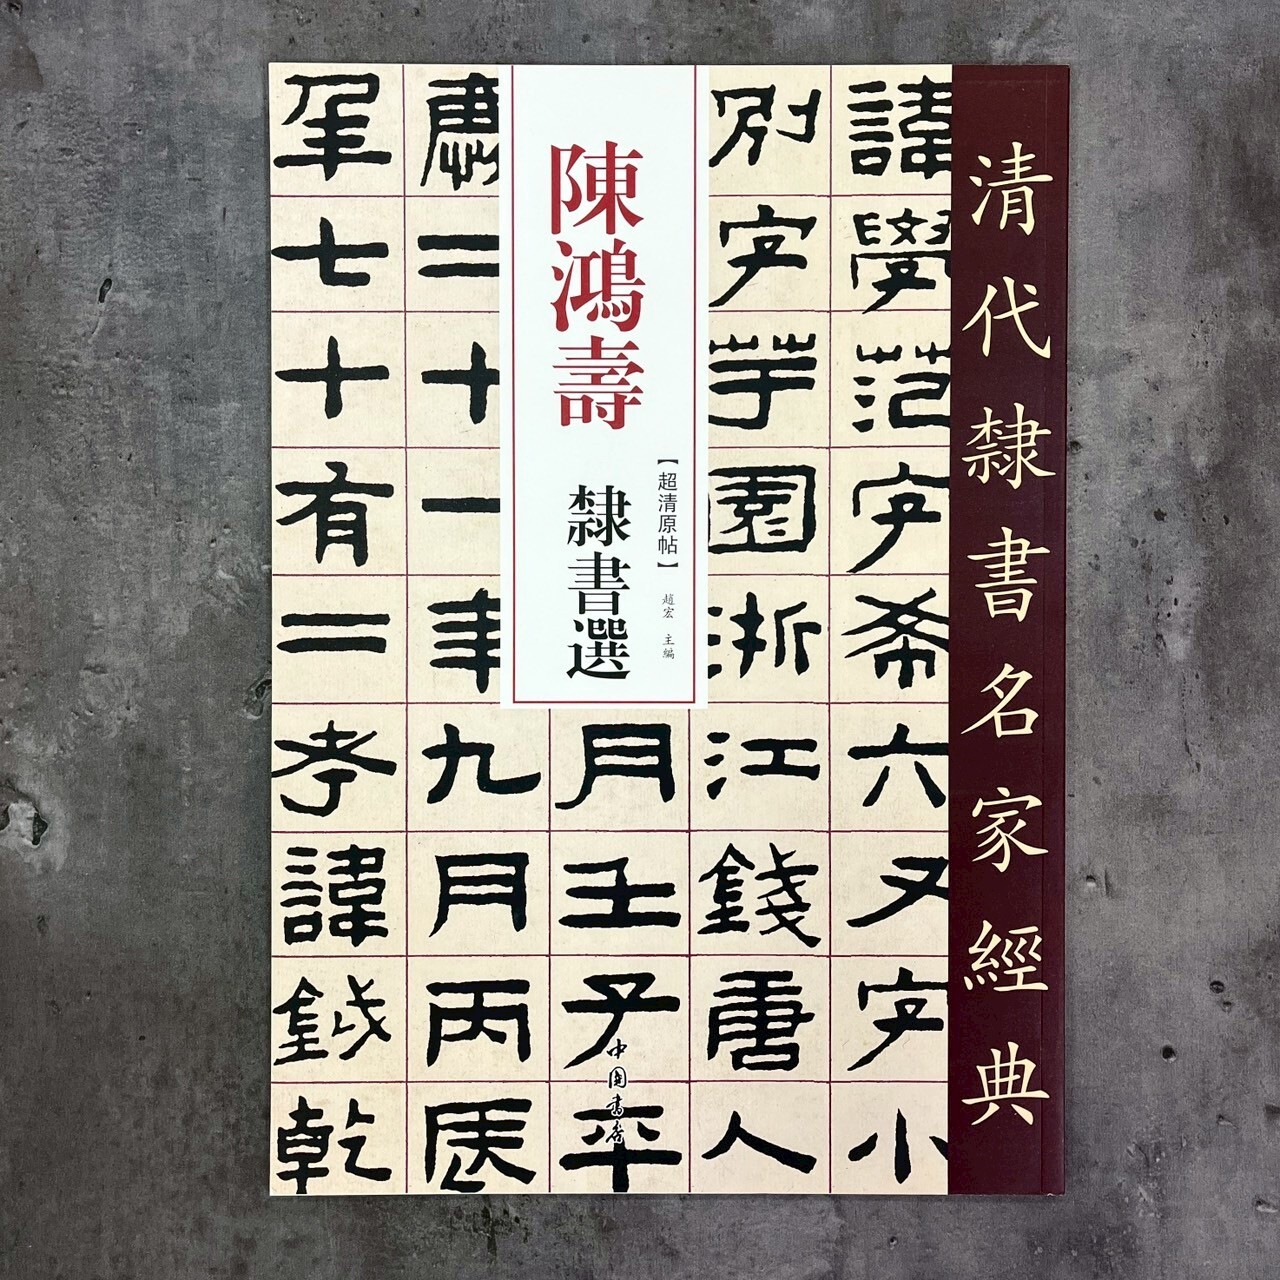 清代隸書名家經典
諱學范字希六又字小
別字芋園浙江錢唐人
【超清原帖】
趙宏 主編
陳鴻壽
隸書選
月壬子平
中国書店
慶二十一年九月丙辰
年七十有二考諱鉞乾